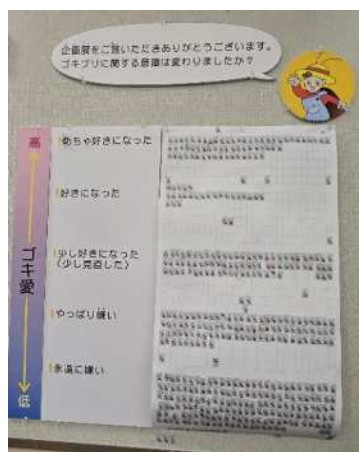 企画展をご覧いただきありがとうございます。
ゴキブリに関する意識は変わりましたか？
高
ゴキ愛
低
めちゃ好きになった
好きになった
少し好きになった
（少し見直した）
やっぱり嫌い
永遠に嫌い